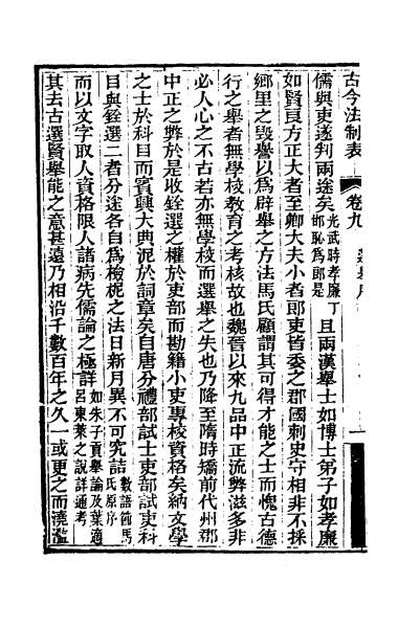 古今法制表 卷九
儒與吏遂判兩途矣光武時孝廉丁邯恥爲郎是且兩漢舉士如博士弟子如孝廉
如賢良方正大者至卿大夫小者郎吏皆委之郡國刺史守相非不採
鄉里之毀譽以爲辟舉之方法馬氏顧謂其可得才能之士而愧古德
行之舉者無學校教育之考核故也魏晉以來九品中正流弊滋多非
必人心之不古若亦無學校而選舉之失也乃降至隋時矯前代州郡
中正之弊於是收銓選之權於吏部而勘籍小吏專校資格矣納文學
之士於科目而賓興大典泥於詞章矣自唐分禮部試士吏部試吏科
目與銓選二者分途各自爲檢柅之法日新月異不可究詰數語節馬氏原序
而以文字取人資格限人諸病先儒論之極詳如朱子貢舉論及葉適呂東萊之說詳通考
其去古選賢舉能之意甚遠乃相沿千數百年之久一或更之而澆濫